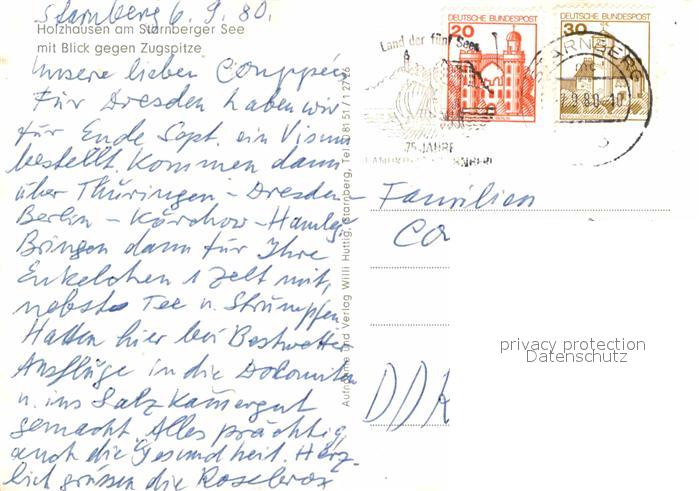 Starnberg 6.9.80.
Holzhausen am Starnberger See
mit Blick gegen Zugspitze
Unsere lieben
Für Dresden haben wir
für Ende Sept. ein Visum
bestellt. Kommen dann
über Thüringen - Dresden -
Berlin - Kärchow - Hamb
Bringen dann für Ihre
Enkelchen 1 Zelt mit,
nebst Tee u. Strümpfen.
Hatten hier bei Bestwetter
Ausflüge in die Dolomiten
u. ins Salzkammergut
gemacht. Alles prächtig,
auch die Gesundheit. Herz-
lich grüssen die
Aufnahme und Verlag Willi Huttig, Starnberg, Tel. 0 81 51 / 1 27 76
DEUTSCHE BUNDESPOST
20
DEUTSCHE BUNDESPOST
30
Land der fünf Seen
75 JAHRE
LANDKREIS STARNBERG
STARNBERG
7.9.80-10
Familien
Co
DDR
privacy protection
Datenschutz